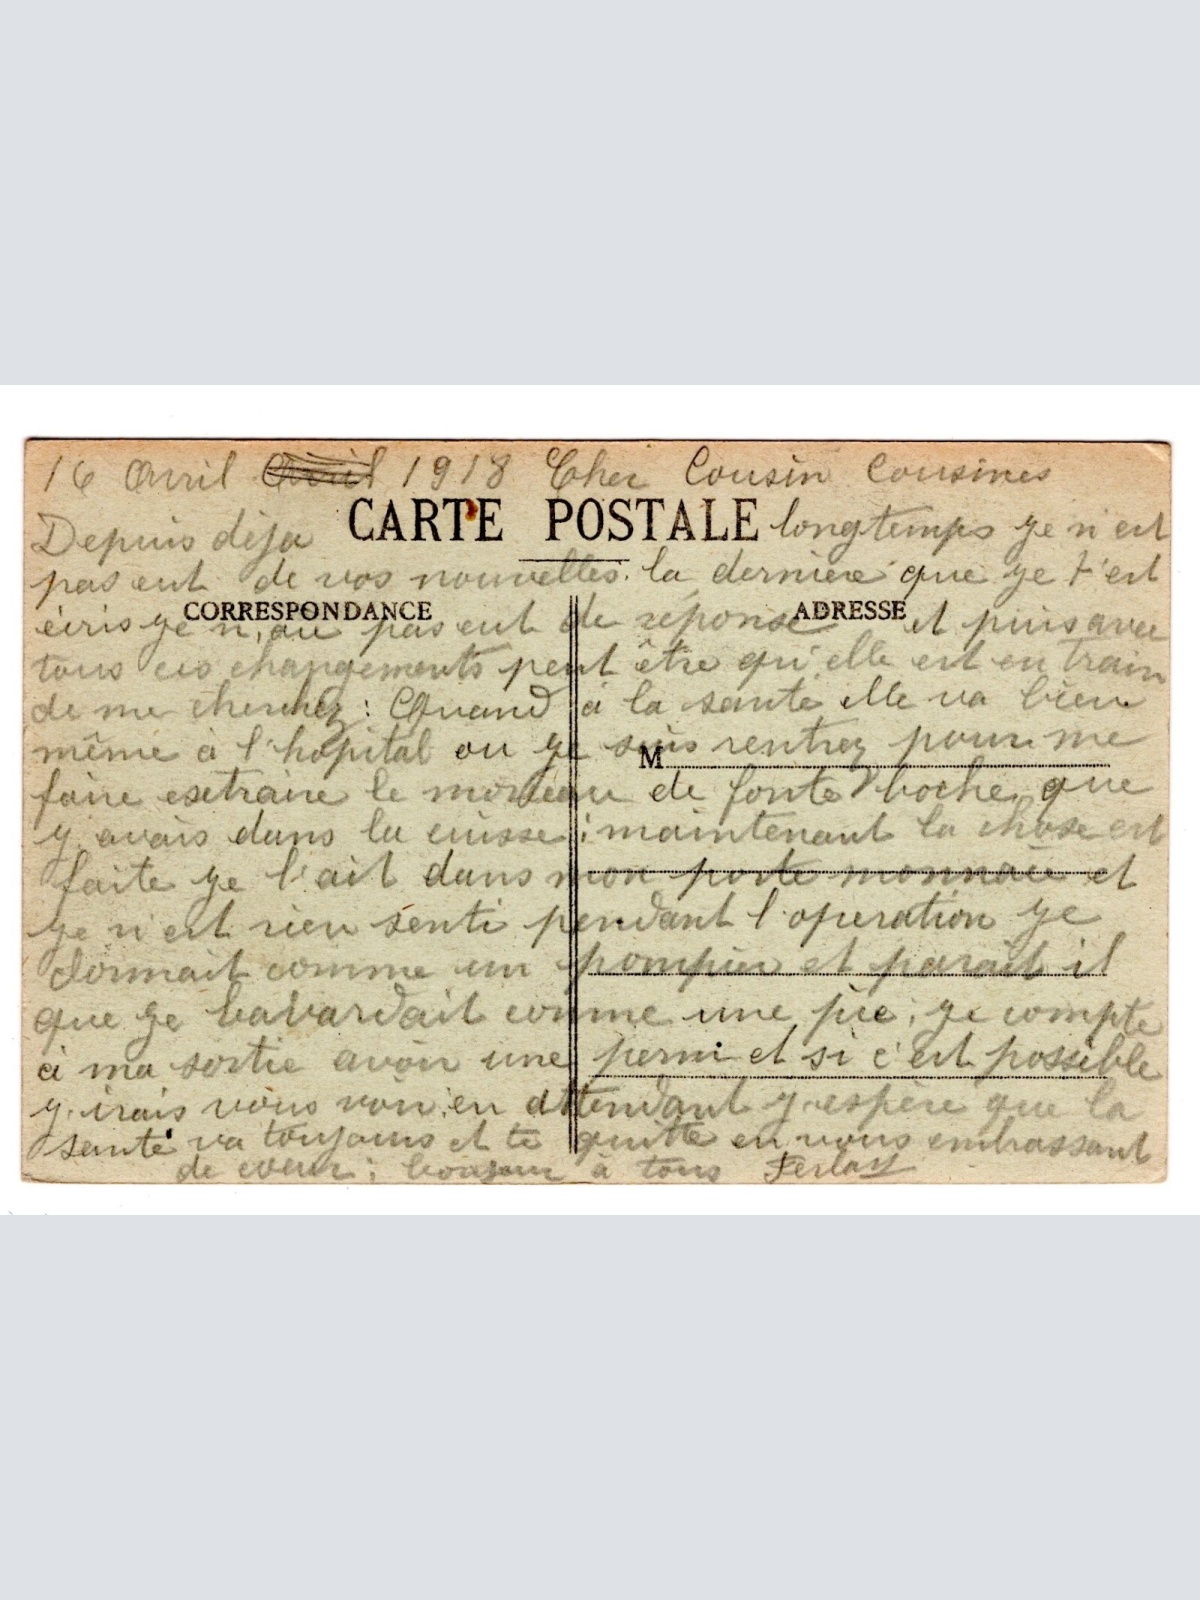 16 Avril 1918 Cher Cousin Cousines
CARTE POSTALE
Depuis déja longtemps je n'est
pas eut de vos nouvelles. la dernière que je t'est
CORRESPONDANCE
ADRESSE
écris je n'ai pas eut de réponse et puis avec
tous ces changements peut être qu'elle est en train
de me cherchez : Quand à la santé elle va bien
même à l'hôpital ou je suis rentrez pour me
M
faire extraire le morceau de fonte boche que
j'avais dans la cuisse ; maintenant la chose est
faite je l'ait dans mon porte monnaie et
je n'est rien senti pendant l'operation je
dormait comme un pompier et parait il
que je bavardait comme une pie ; je compte
à ma sortie avoir une permi et si c'est possible
j'irais vous voir en attendant j'espère que la
santé va toujours et te quitte en vous embrassant
de cœur ; bonjour à tous